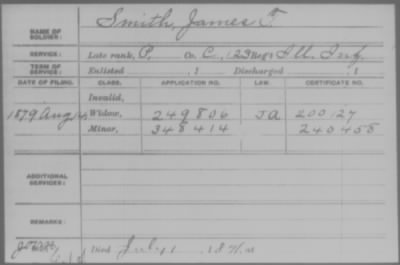 NAME OF SOLDIER: Smith, James F.
SERVICE: Late rank, P, Co. C, 123 Reg't Ill. Inf.
TERM OF SERVICE: Enlisted , 1 Discharged , 1
DATE OF FILING. CLASS. APPLICATION NO. LAW. CERTIFICATE NO.
Invalid,
1879 Aug 14 Widow, 249806 JA 200127
Minor, 348414 240458
ADDITIONAL SERVICES:
REMARKS:
Died July 1871, at